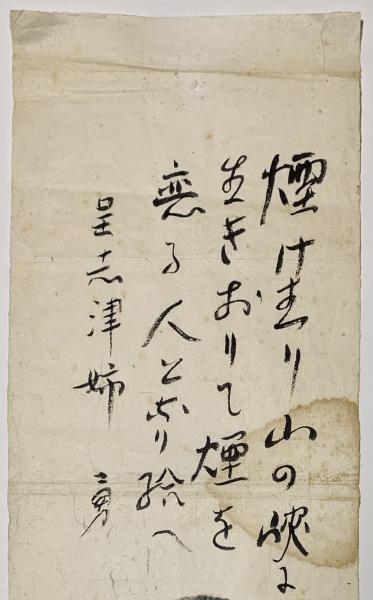 煙けむり山の峡に
生きおりて煙を
恋る人となり給へ
呈志津姉 勇